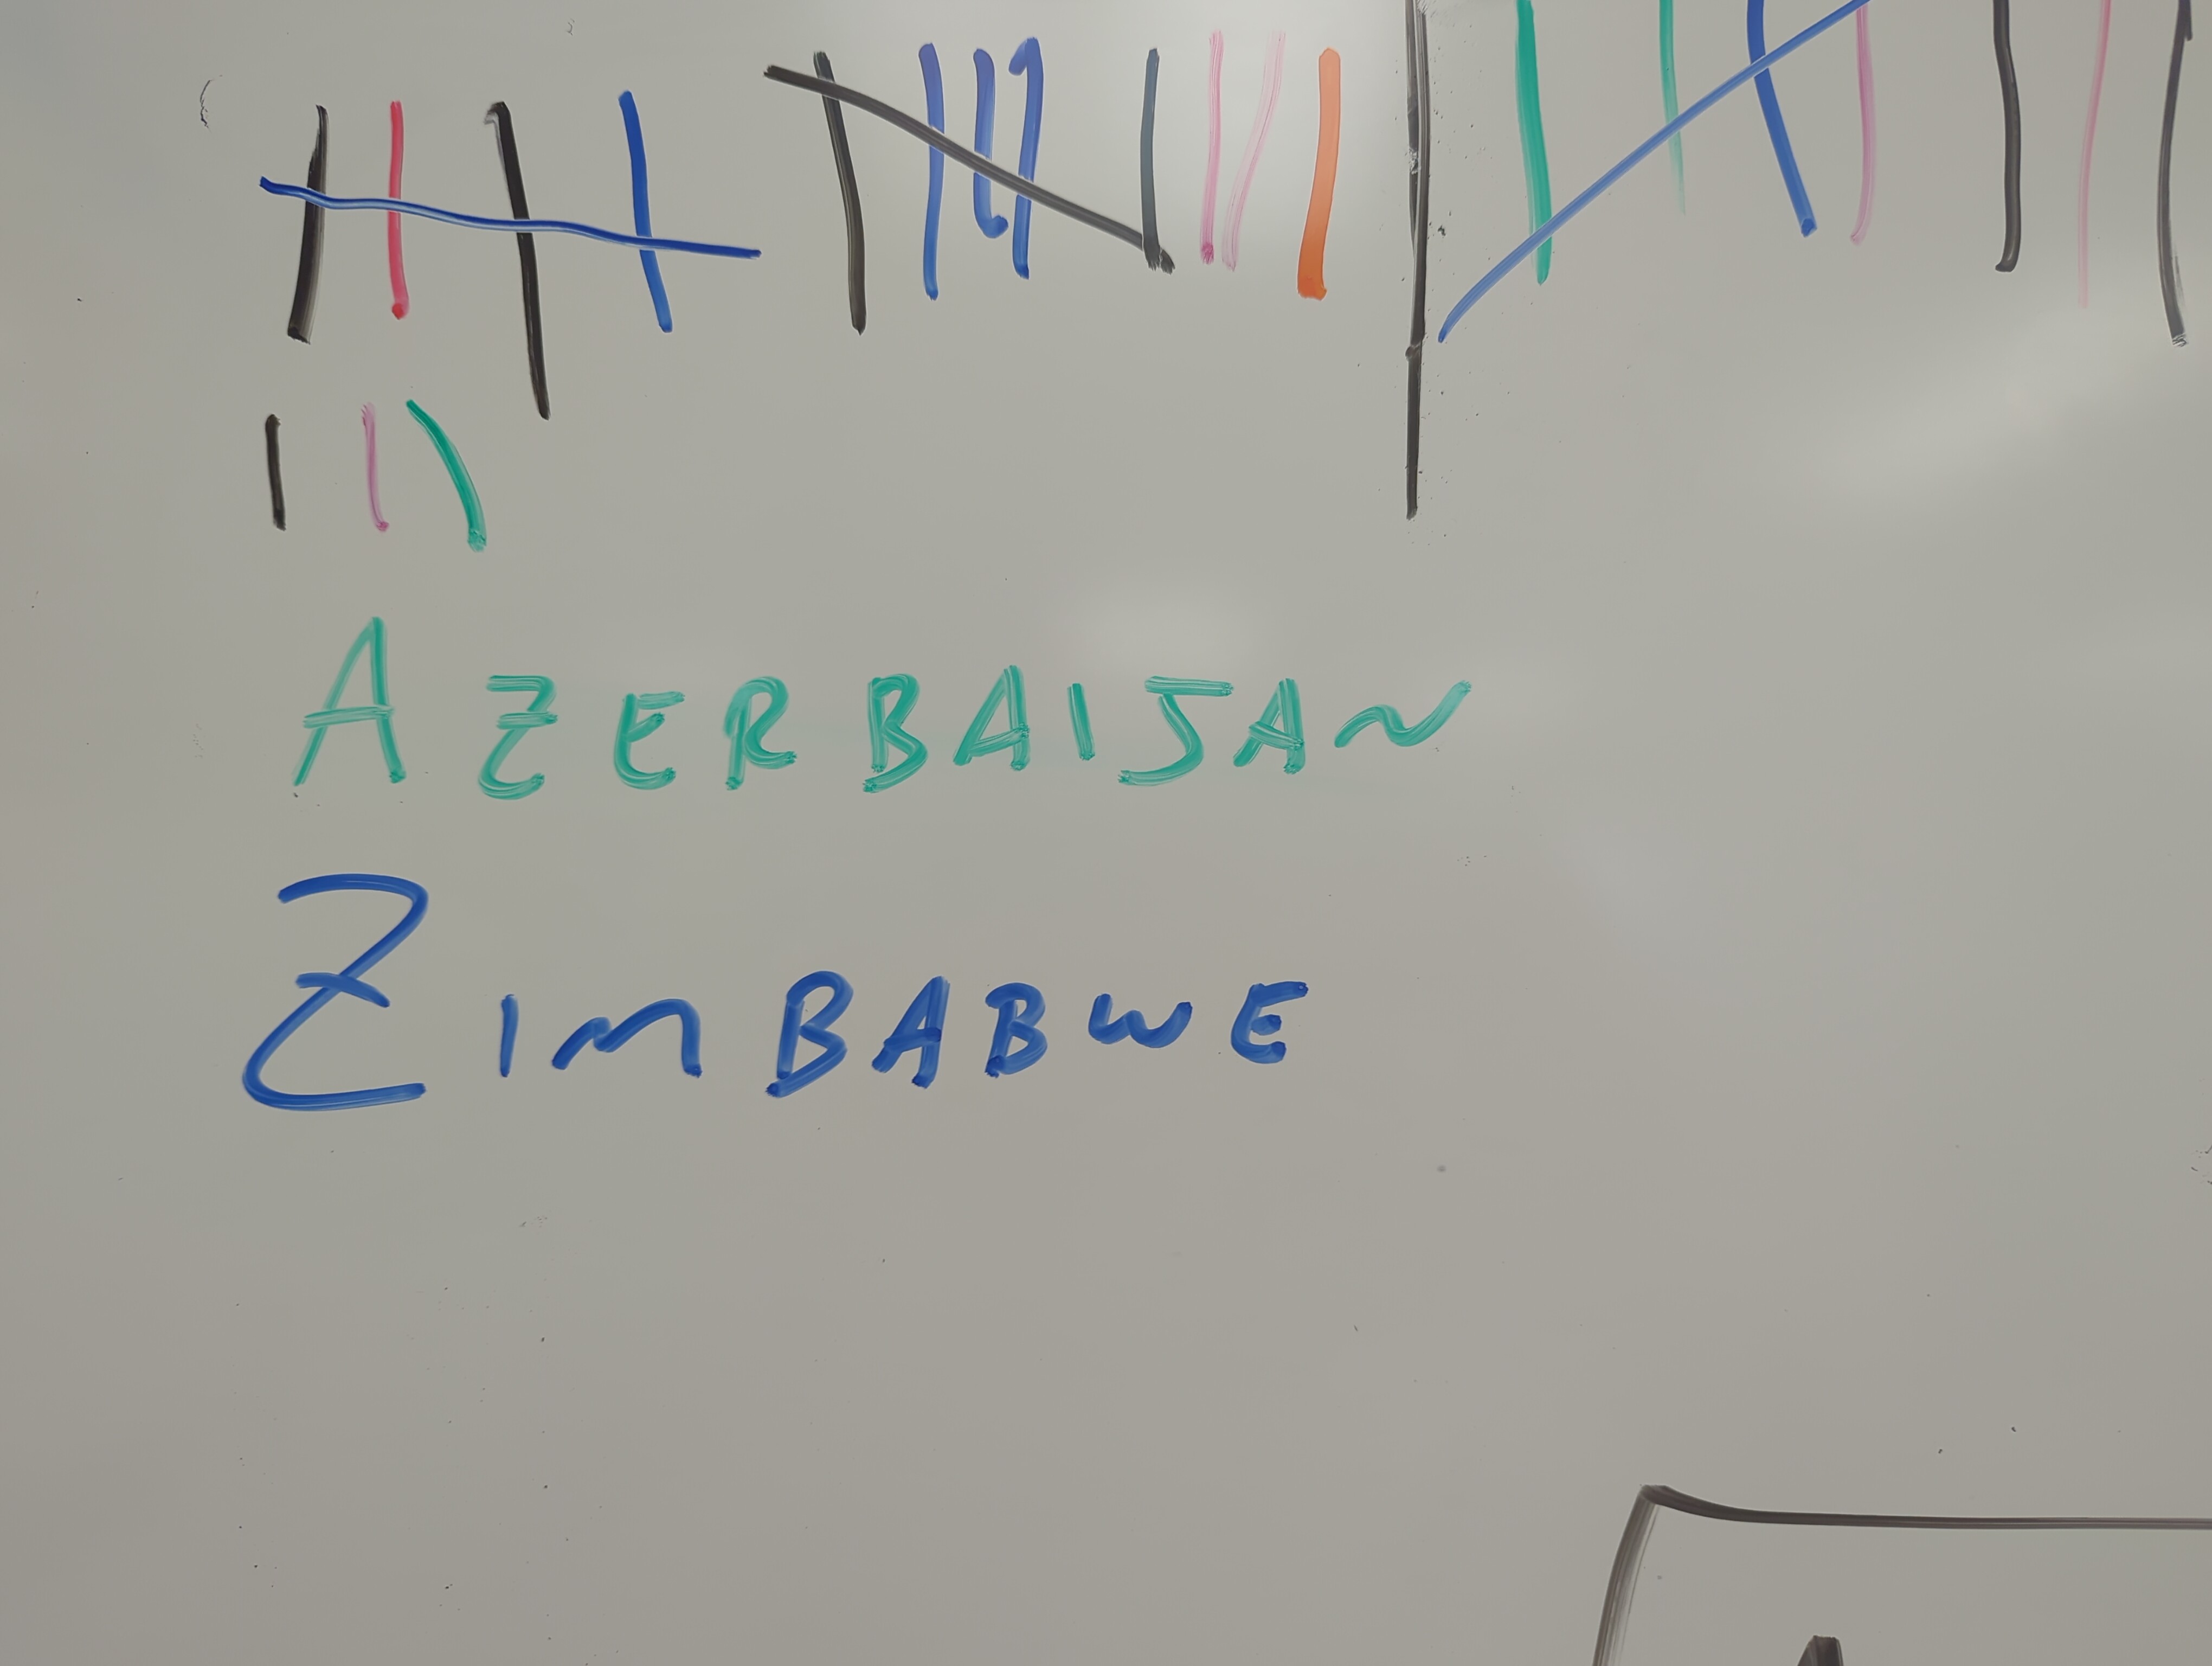 AZERBAIJAN
ZIMBABWE